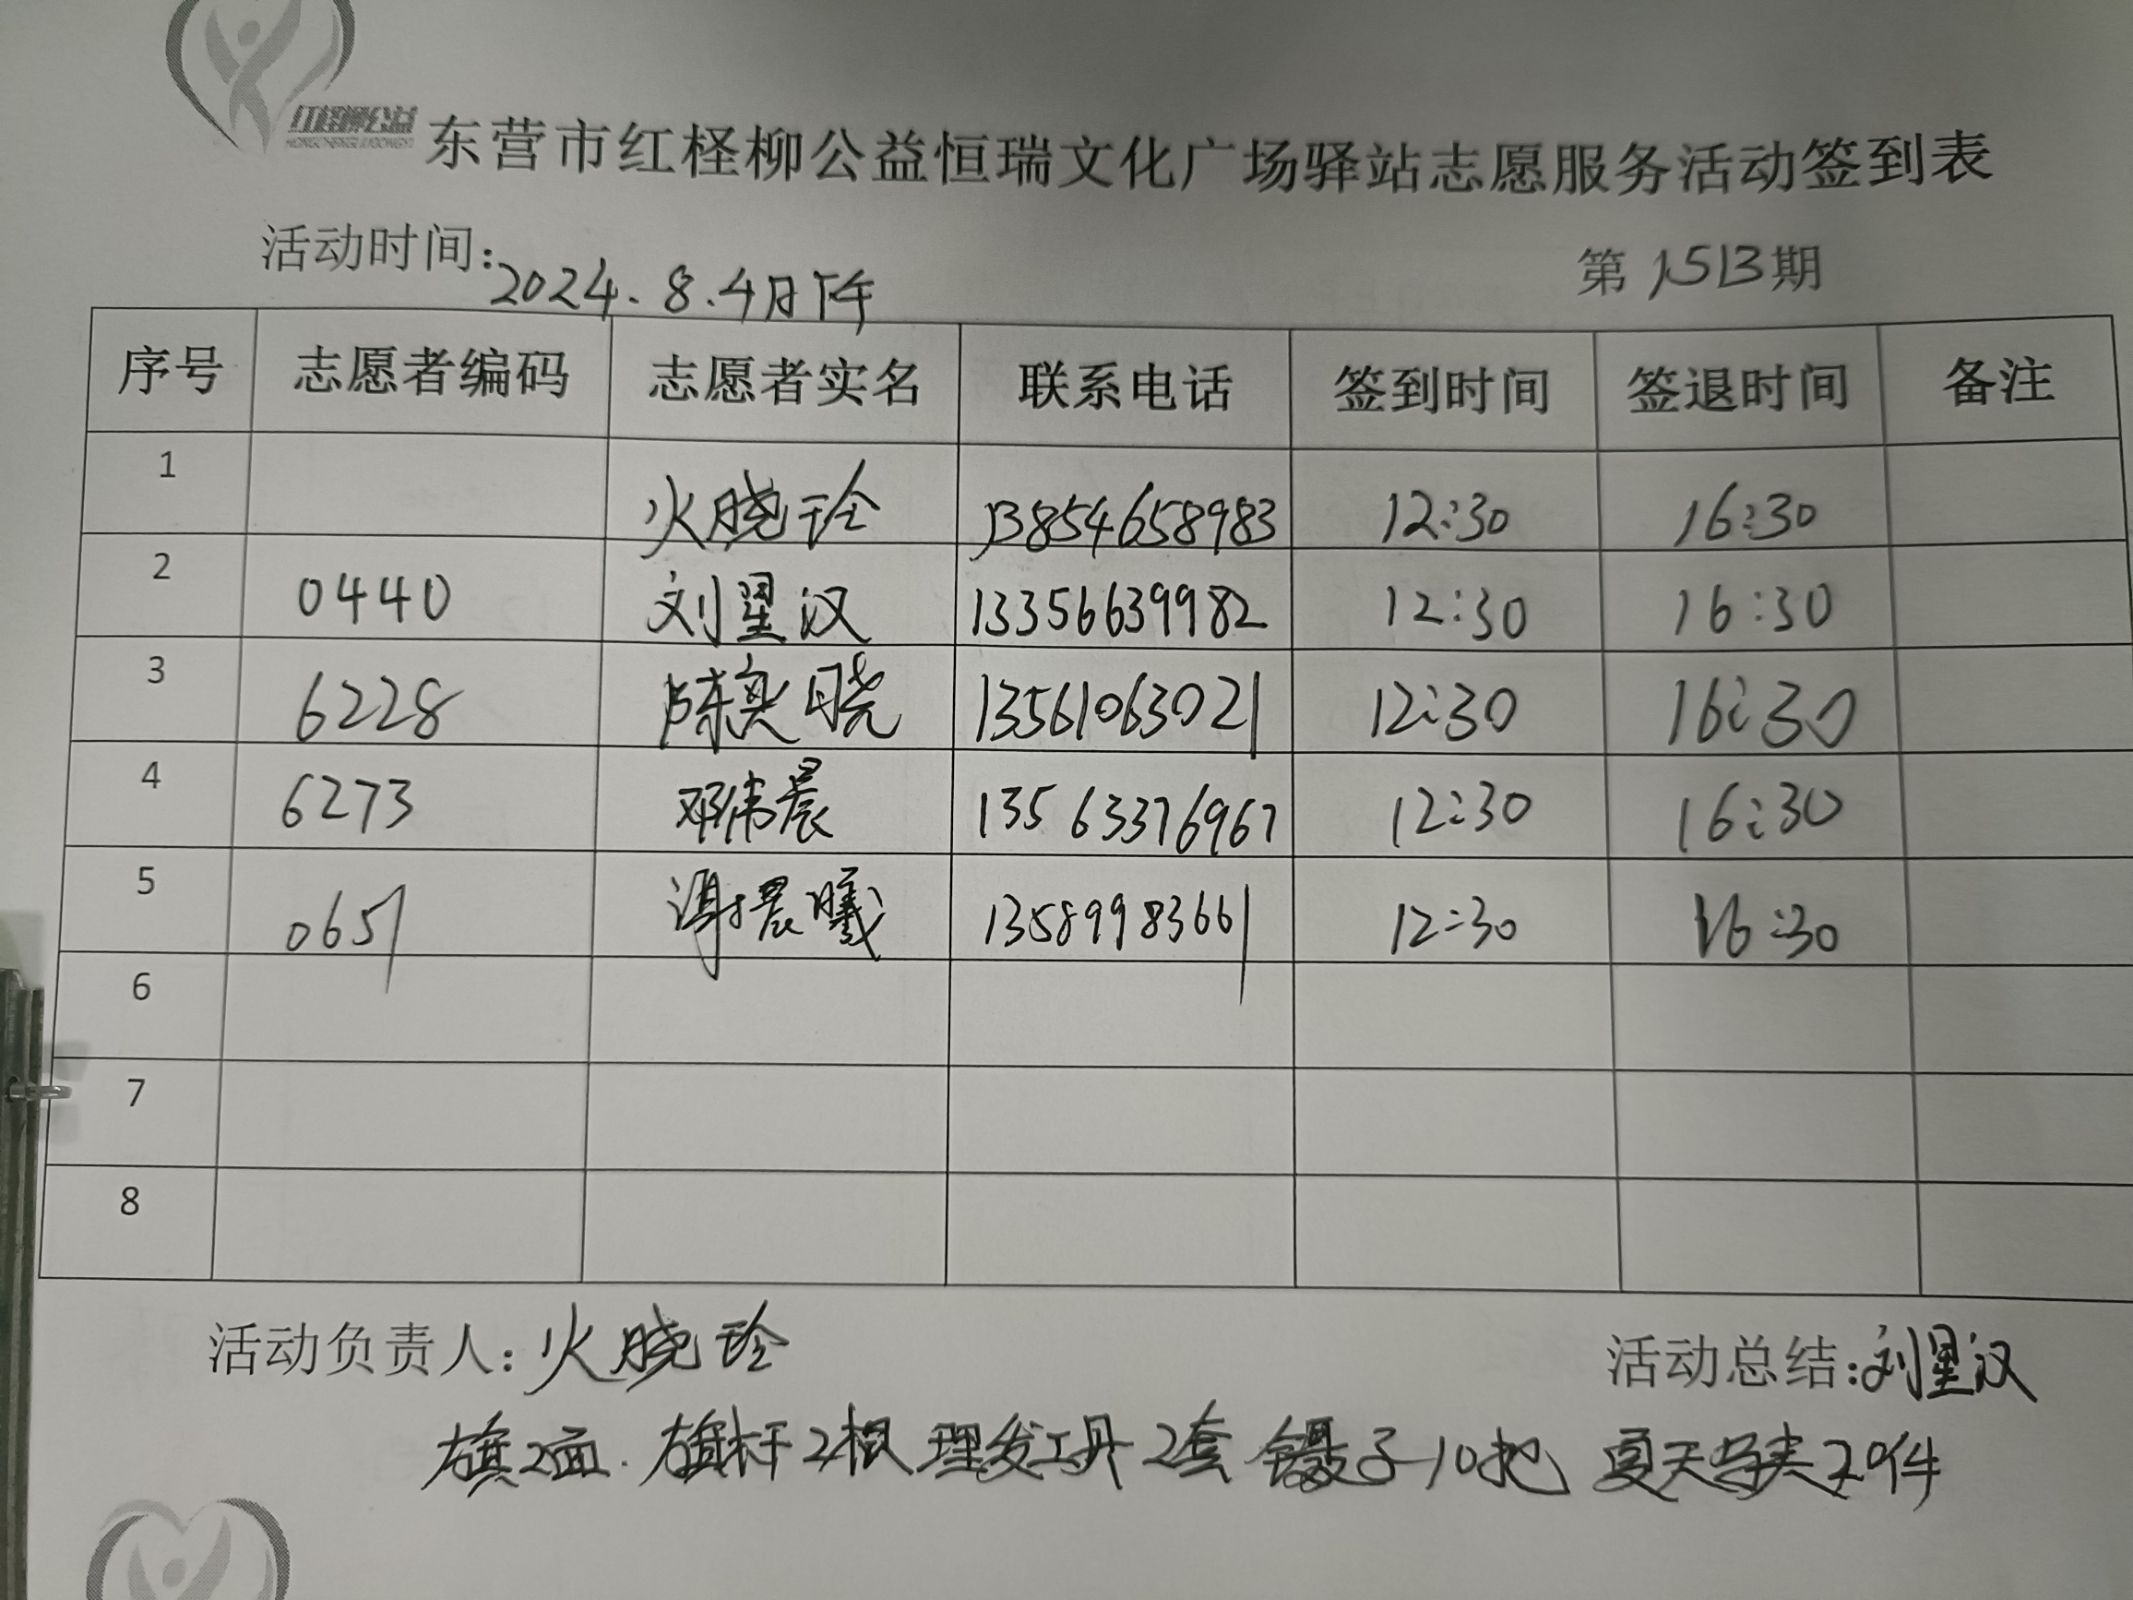 红柽柳公益
HONGCHENGLIUGONGYI
东营市红柽柳公益恒瑞文化广场驿站志愿服务活动签到表
活动时间：2024.8.4日下午 第1513期
序号 志愿者编码 志愿者实名 联系电话 签到时间 签退时间 备注
1 火晓玲 13854658983 12:30 16:30
2 0440 刘星汉 13356639982 12:30 16:30
3 6228 陈奕晓 13561063021 12:30 16:30
4 6273 邓伟晨 13563376967 12:30 16:30
5 0651 谢晨曦 13589983661 12:30 16:30
6
7
8
活动负责人：火晓玲 活动总结：刘星汉
旗2面. 旗杆2根 理发工具2套 镊子10把 夏天马夹20件